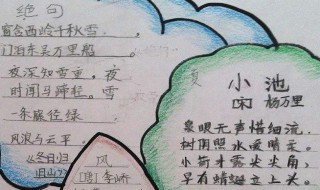 绝句
窗含西岭千秋雪。
门泊东吴万里船
夜深知雪重，夜
时闻
雪
一条藤径绿
风浪与云平。
《冬日归
旧山》
风
[唐]李峤
夏
小池
[宋] 杨万里
泉眼无声惜细流，
树阴照水爱晴柔。
小荷才露尖尖角，
早有蜻蜓立上头。